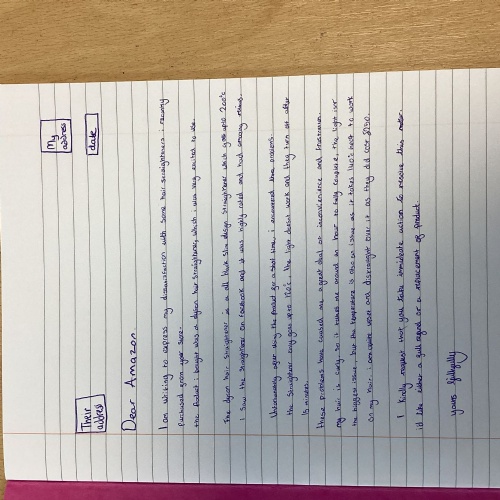 My
address
date
Their
address
Dear Amazon
I am writing to express my dissatisfaction with some hair straighteners i recently
purchased from your store.
the Product i bought was a dyson hair straightener, which i was very excited to use.
The dyson hair straightener is a all black slim design straightener which goes upto 200°c
I saw the straightener on facebook and it was highly rated and had amazing reviews.
Unfortunately after using the product for a short time, i encountered these problems.
the straightener only goes up to 120°c, the light doesnt work and they turn off after
15 minutes.
these problems have caused me a great deal on inconvenience and frustration.
my hair is curly so it takes me around an hour to fully complete. the light isnt
the biggest issue, but the temperature is also an issue as it takes 160°c heat to work
on my hair. i am quite upset and distraught over it as they did cost £250.
I kindly request that you take immediate action to resolve this matter.
id like either a full refund or a replacement of product
yours